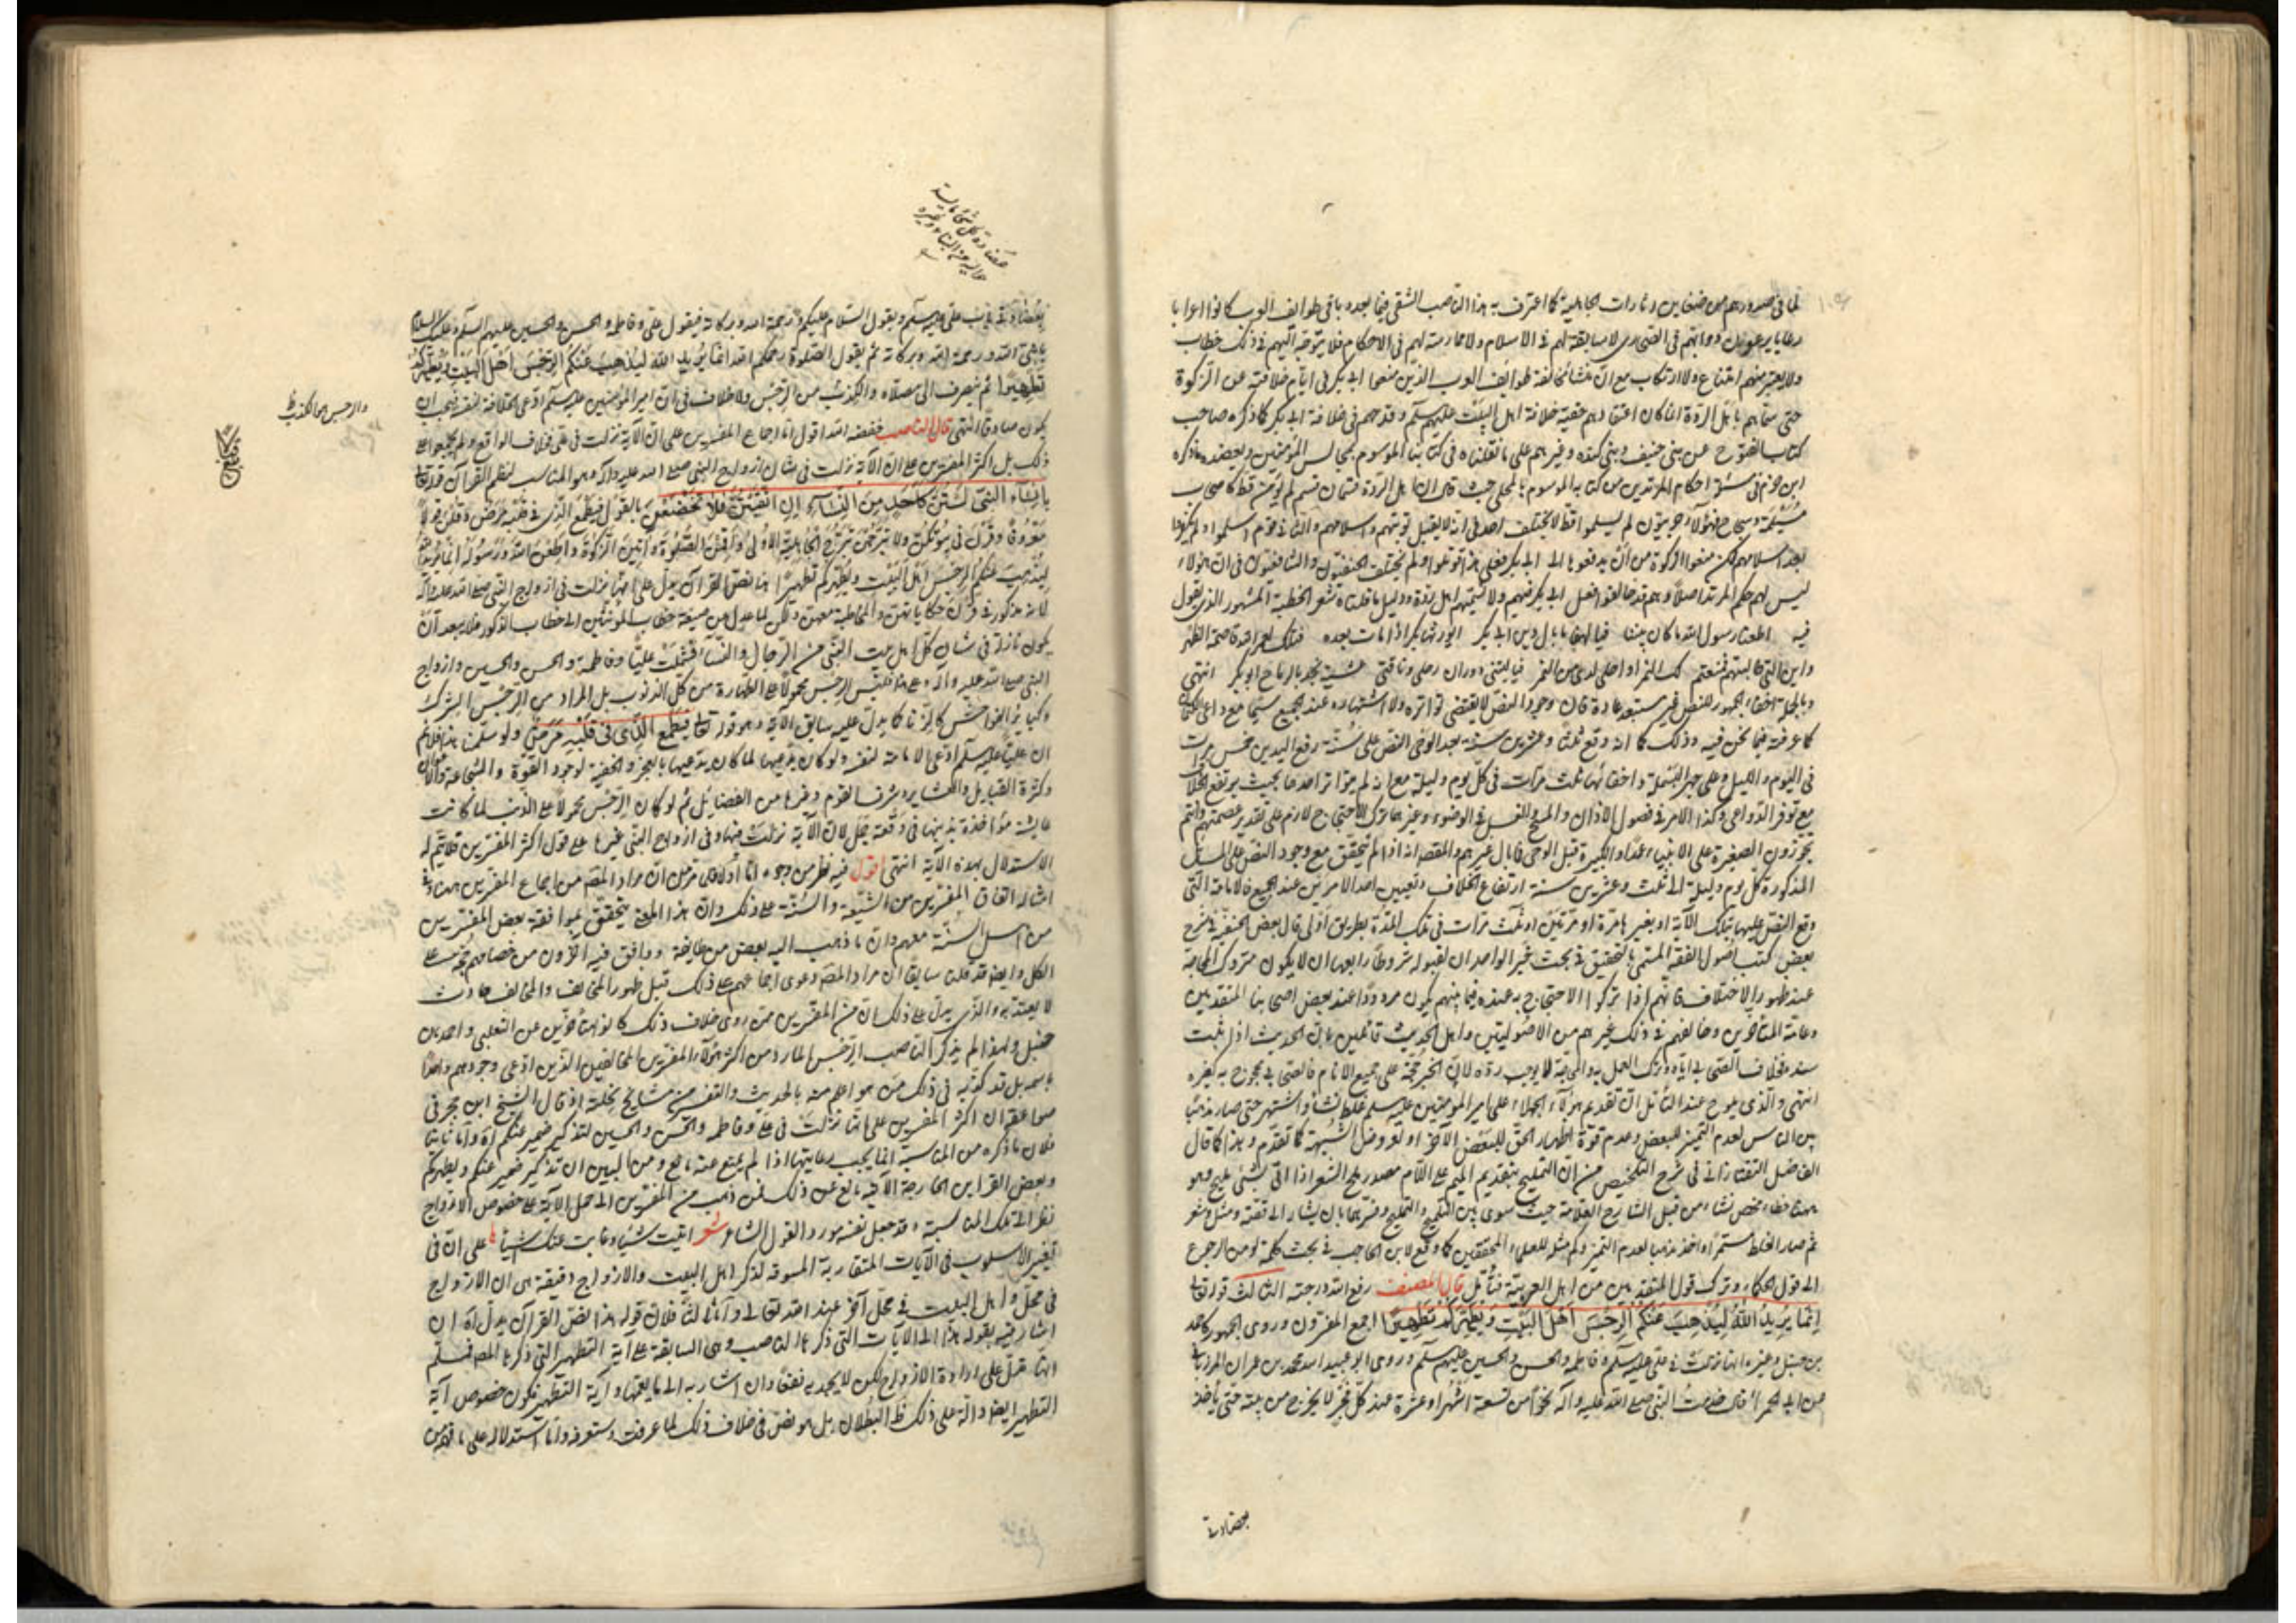 لما في صدورهم من ضغاين وثارات الجاهلية كما اعترف به هذا الناصب الشقي فيما بعده باقي طوايف العرب كانوا اعرابا
في الاسلام ولا ممارسة لهم في الاحكام فلا يتوجه اليهم في ذلك خطاب
ولا يعتبر منهم امتناع ولا ارتكاب مع ان منشأ مخالفة طوائف العرب الذين منعوا ابا بكر في ايام خلافته عن الزكوة
حتى سماهم باهل الردة انما كان اعتقادهم حقية خلافة اهل البيت عليهم السلم وقدحهم في خلافة ابي بكر كما ذكره صاحب
كتاب الفتوح عن بني حنيف وبني كنده وغيرهم على ما نقلناه في كتابنا الموسوم بمجالس المؤمنين ويعضده ما ذكره
ابن حزم في احكام المرتدين من كتابه الموسوم بالمحلى حيث قال ان اهل الردة قسمان قسم لم يؤمن قط كاصحاب
مسيلمة وسجاح فهؤلاء حربيون لم يسلموا قط لا يختلف احد في انه لا يقبل توبتهم واسلامهم والثاني قوم اسلموا ولم يكفروا
بعد اسلامهم لكن منعوا الزكوة من ان يدفعوها الى ابي بكر فعلى هذا قوتلوا ولم يختلف الحنفيون والشافعيون في ان هؤلاء
ليس لهم حكم المرتد اصلا وهم قد خالفوا فعل ابي بكر فيهم ولا نسميهم اهل ردة ودليل ما قلناه شعر الحطيئة المشهور الذي يقول
فيه اطعنا رسول الله ما كان بيننا فيا لهفا ما بال دين ابي بكر ايورثها بكرا اذا مات بعده فتلك لعمر الله قاصمة الظهر
وان التي طالبتم فمنعتم لكالتمر او احلى لدي من التمر فيا ليتني انتهى
وبالجملة اخفاء الجمهور للنص غير مستبعد عادة فان وجود النص لا يقتضي تواتره ولا اشتهاره عند الجميع سيما مع دواعي الكتمان
كما عرفته فيما نحن فيه وذلك كما انه وقع ثلثا وعشرين سنة بعد الوحي النص على سنة رفع اليدين خمس مرات
في اليوم والليل وعلى جهر البسملة واخفائها ثلث مرات في كل يوم وليلة مع انه لم يتواتر احدهما بحيث يرتفع الخلاف
مع توفر الدواعي وكذا الامر في فصول الاذان والمسح والغسل في الوضوء وغيرها
تجوزون الصغيرة على الانبياء عمدا والكبيرة قبل الوحي فما بال غيرهم والمقصد انه اذا لم يتحقق مع وجود النص على المسائل
المذكورة كل يوم وليلة الى ثلث وعشرين سنة ارتفاع الخلاف وتعيين احد الامرين عند الجميع فالامامة التي
وقع النص عليها بتلك الآية او بغيرها مرة او مرتين او ثلث مرات في تلك المدة بطريق اولى قال بعض الحنفية في شرح
بعض كتب اصول الفقه المسمى بالتحقيق في بحث خبر الواحد ان لقبوله شروطا رابعها ان لا يكون متروك المحاجة
عند ظهور الاختلاف فانهم اذا تركوا الاحتجاج به عنده فيما بينهم يكون مردودا عند بعض اصحابنا المتقدمين
وعامة المتأخرين وخالفهم في ذلك غيرهم من الاصوليين واهل الحديث قائلين بان الحديث اذا ثبت
سنده فخلاف الصحابي اياه وترك العمل به والمحاجة لا يوجب رده لان الخبر حجة على جميع الانام فالصحابي محجوج به كغيره
انتهى والذي يلوح عند التأمل ان تقديم هؤلاء الجهلاء على امير المؤمنين عليه السلم غلط نشأ واشتهر حتى صار مذهبا
بين الناس لعدم التميز للبعض وعدم قوة اظهار الحق للبعض الآخر او لعروض الشبهة كما تقدم وهذا كما قال
الفاضل التفتازاني في شرح التلخيص من ان التمليح بتقديم الميم على اللام مصدر ملح الشعر اذا اتى بشيء مليح وهو
ههنا خطاء محض نشأ من قبل الشارح العلامة حيث سوى بين التلميح والتمليح وفسرهما بان يشار الى قصة او مثل او شعر
ثم صار الغلط مستمرا واخذ مذهبا لعدم التميز وكم مثله للعلماء المحققين كما وقع لابن الحاجب في بحث كلمة لو من الرجوع
الى قول الحكماء وترك قول المتقدمين من اهل العربية فتأمل قال المصنف رفع الله درجته الثالث قوله تعالى
انما يريد الله ليذهب عنكم الرجس اهل البيت ويطهركم تطهيرا اجمع المفسرون وروى الجمهور كاحمد
بن حنبل وغيره انها نزلت في علي عليه السلم وفاطمة والحسن والحسين عليهم السلم وروى ابو عبيد الله محمد بن عمران المرزباني
عن ابي الحمراء قال خدمت النبي صلى الله عليه وآله نحوا من تسعة اشهر او عشرة عند كل فجر لا يخرج من بيته حتى يأخذ
بعضادتي
بعضادتي باب علي عليه السلم ويقول السلام عليكم ورحمة الله وبركاته فيقول علي وفاطمة والحسن والحسين عليهم السلم وعليك السلام
يا نبي الله ورحمة الله وبركاته ثم يقول الصلوة رحمكم الله انما يريد الله ليذهب عنكم الرجس اهل البيت ويطهركم
تطهيرا ثم ينصرف الى مصلاه والكذب من الرجس ولا خلاف في ان امير المؤمنين عليه السلم ادعى الخلافة لنفسه فيجب ان
يكون صادقا انتهى قال الناصب خفضه الله اقول اما اجماع المفسرين على ان الآية نزلت في علي فخلاف الواقع ولم يجمعوا على
ذلك بل اكثر المفسرين على ان الآية نزلت في شان ازواج النبي صلى الله عليه وآله وهو المناسب لنظم القرآن قوله تعالى
يا نساء النبي لستن كاحد من النساء ان اتقيتن فلا تخضعن بالقول فيطمع الذي في قلبه مرض وقلن قولا
معروفا وقرن في بيوتكن ولا تبرجن تبرج الجاهلية الاولى واقمن الصلوة وآتين الزكوة واطعن الله ورسوله انما يريد الله
ليذهب عنكم الرجس اهل البيت ويطهركم تطهيرا هذا نص القرآن يدل على انها نزلت في ازواج النبي صلى الله عليه وآله
لانه مذكور في قرن حكاياتهن والمخاطبة معهن ولكن لما عدل من صيغة خطاب المؤنثين الى خطاب الذكور فلا يبعد ان
يكون نازلة في شان كل اهل بيت النبي من الرجال والنساء فشملت عليا وفاطمة والحسن والحسين وازواج
النبي صلى الله عليه وآله وعلى هذا فليس الرجس محمولا على الطهارة من كل الذنوب بل المراد من الرجس الشرك
وكبائر الفواحش كالزنا كما يدل عليه سابق الآية وهو قوله تعالى فيطمع الذي في قلبه مرض ولو سلمنا هذا فلا نم
ان عليا عليه السلم ادعى الامامة لنفسه ولو كان يدعيها لما كان يدعيها بالعجز والخفية لوجود القوة والشجاعة والاعوان
وكثرة القبايل والعشاير وشرف القوم وغيرها من الفضايل ثم لو كان الرجس محمولا على الذنب لما كانت
عايشة مؤاخذة بذنبها في وقعة جمل لان الآية نزلت فيها وفي ازواج النبي غيرها على قول اكثر المفسرين فلا يتم له
الاستدلال بهذه الآية انتهى اقول فيه نظر من وجوه اما اولا فلما مر من ان مراد المص من اجماع المفسرين ههنا وفي
امثاله اتفاق المفسرين من الشيعة والسنة على ذلك وان هذا المعنى يتحقق بموافقة بعض المفسرين
من اهل السنة معهم وان ما ذهب اليه بعض من طايفة ووافق فيه آخرون من خصامهم حجة على
الكل وايضا قد قلنا سابقا ان مراد المص دعوى اجماعهم على ذلك قبل ظهور المخالف والمخالف حادث
لا يعتد به والذي يدل على ذلك ان من المفسرين ممن روى خلاف ذلك كانوا متأخرين عن الثعلبي واحمد بن
حنبل ولهذا لم يذكر الناصب الرجس المارد من اكثر هؤلاء المفسرين المخالفين الذين ادعى وجودهم واحدا
باسمه بل قد كذبه في ذلك من هو اعلم منه بالحديث والتفسير من مشايخ نحلته اذ قال الشيخ ابن حجر في
صواعقه ان اكثر المفسرين على انها نزلت في علي وفاطمة والحسن والحسين لتذكير ضمير عنكم آه واما ثانيا
فلان ما ذكره من المناسبة انما يجب رعايتها اذا لم يمنع عنه مانع ومن البين ان تذكير ضمير عنكم ويطهركم
وبعض القراين الخارجة الآتية مانع عن ذلك فمن ذهب من المفسرين الى حمل الآية على خصوص الازواج
نظرا الى تلك المناسبة فقد جعل نفسه مورد القول الشاعر شعر اتيت شيئا وغابت عنك اشياء على ان في
تغيير الاسلوب في الآيات المتقاربة المسوقة لذكر اهل البيت والازواج دقيقة هي ان الازواج
في محل واهل البيت في محل آخر عند الله تعالى واما ثالثا فلان قوله هذا نص القرآن يدل آه ان
اشار فيه بقوله هذا الى الآيات التي ذكرها الناصب وهي السابقة على آية التطهير التي ذكرها المص فمسلم
انها تدل على ارادة الازواج لكن لا يجديه نفعا وان اشار به الى ما يعمها وآية التطهير فكون خصوص آية
التطهير ايضا دالة على ذلك ظ البطلان بل هو نص في خلاف ذلك لما عرفت وستعرفه واما استدلاله على ما فهم من